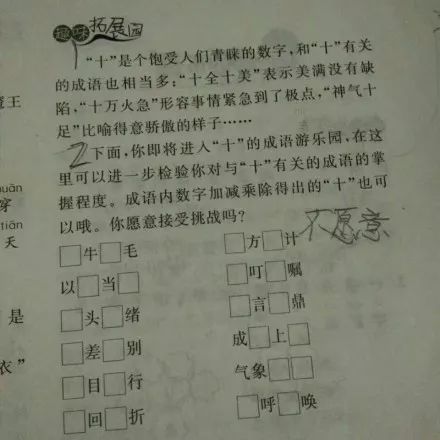 趣味拓展园
"十"是个饱受人们青睐的数字，和"十"有关
的成语也相当多："十全十美"表示美满没有缺
陷，"十万火急"形容事情紧急到了极点，"神气十
足"比喻得意骄傲的样子……
2下面，你即将进入"十"的成语游乐园，在这
里可以进一步检验你对与"十"有关的成语的掌
握程度。成语内数字加减乘除得出的"十"也可
以哦。你愿意接受挑战吗？
不愿意
□牛□毛
□方□计
以□当□
□叮□嘱
□头□绪
□言□鼎
□差□别
成□上□
□目□行
气象□□
□回□折
□呼□唤
王
uān
穿
tiān
天
是
衣"